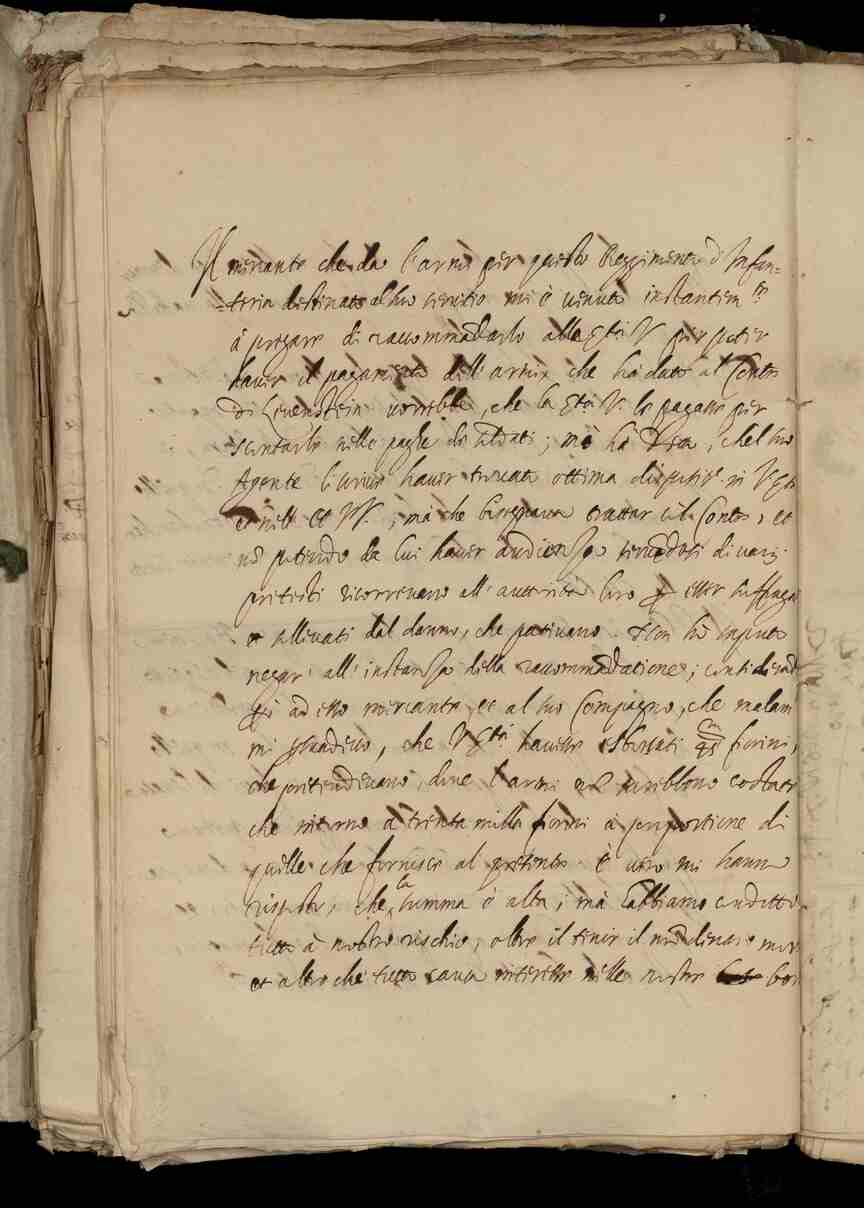 Il mercante che da l'armi per questo Reggimento d'Infan=
=teria destinato al suo servitio mi è venuto instantem.te
à pregare di raccommandarlo alle V per poter
haver il pagamento dell'armi che hà dato al Conte
di Levenstein vorrebbe, che la V. le pagasse per
scontarle nelle paghe de soldati; mi hà che'l suo
Agente scrive haver trovata ottima dispositi.e in V
; mà che bisognava trattar col Conte, et
nõ potendo da lui haver audienza scusandosi di varij
pretesti ricorrevano all'auttorità loro esser suffraga
et sollevati dal danno, che pativano. Non hò saputo
negar' all'instanza della raccommãdatione; considerand
ad esso mercante, et al suo Compagno, che malam
mi persuadevo, che V havesse sborsati 45 fiorini,
che pretendevano, dove l'armi nõ sariblono costate
che intorno à trenta milla fiorini à proportione di
quelle che fornisce al presente. è vero mi hanno
risposto, che la summa è alta; mà l'abbiamo condotte
tutto à nostro rischio, oltre il tener il nrõ denaro mor
et altro che tutto causa interesse nelle nostre bor